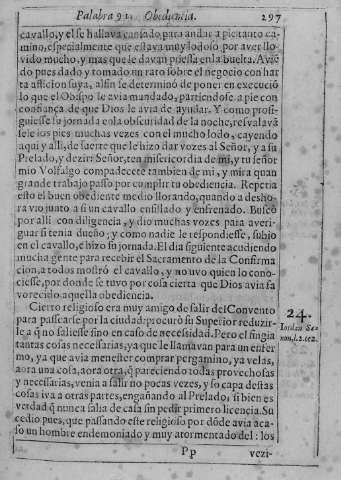 Palabra 91. Obediencia. 297
cavallo, y el se hallava cansado para andar a pie tanto ca-
mino, especialmente que estava muy lodoso por aver llo-
vido mucho, y mas que le davan priessa en la buelta. Avié
do pues dado y tomado un rato sobre el negocio con har
ta afliciõ suya, alfin se determinó de poner en execució
lo que el Obispo le avia mandado, partiendose a pie con
confiança de que Dios le avia de ayudar. Y como prosi-
guiesse su jornada cõ la obscuridad de la noche, resvalava
sele los pies muchas vezes con el mucho lodo, cayendo
aqui y alli, de suerte que le hizo dar vozes al Señor, y a su
Prelado, y dezir: Señor, ten misericordia de mi, y tu señor
mio Volfalgo compadecete tambien de mi, y mira quan
grande trabajo passo por complir tu obediencia. Repetia
esto el buen obediente medio llorando, quando a desho-
ra vio junto a si un cavallo ensillado y enfrenado. Buscó
por alli con diligencia, y dio muchas vozes para averi-
guar si tenia dueño; y como nadie le respondiesse, subio
en el cavallo, e hizo su jornada. El dia siguiente acudiendo
mucha gente para recebir el Sacramento de la Confirma
cion, a todos mostró el cavallo, y no uvo quien lo cono-
ciesse, por donde se tuvo por cosa cierta que Dios avia fa
vorecido aquella obediencia.
Cierto religioso era muy amigo de salir del Convento
para passearse por la ciudad: procuró su Superior reduzir-
le a q̃ no saliesse sino en caso de necessidad. Pero el fingia
tantas cosas necessarias, ya que le llamavan para un enfer
mo, ya que avia menester comprar pergamino, ya velas,
aora una cosa, aora otra, q̃ pareciendo todas provechosas
y necessarias, venia a salir no pocas vezes, y so capa destas
cosas iva a otras partes, engañando al Prelado, si bien es
verdad q̃ nunca salia de casa sin pedir primero licencia. Su
cedio pues, que passando este religioso por dõde avia aca-
so un hombre endemoniado y muy atormentado del: los
24.
Iordan Sa-
xon, l.2. c.12.
Pp vezi-